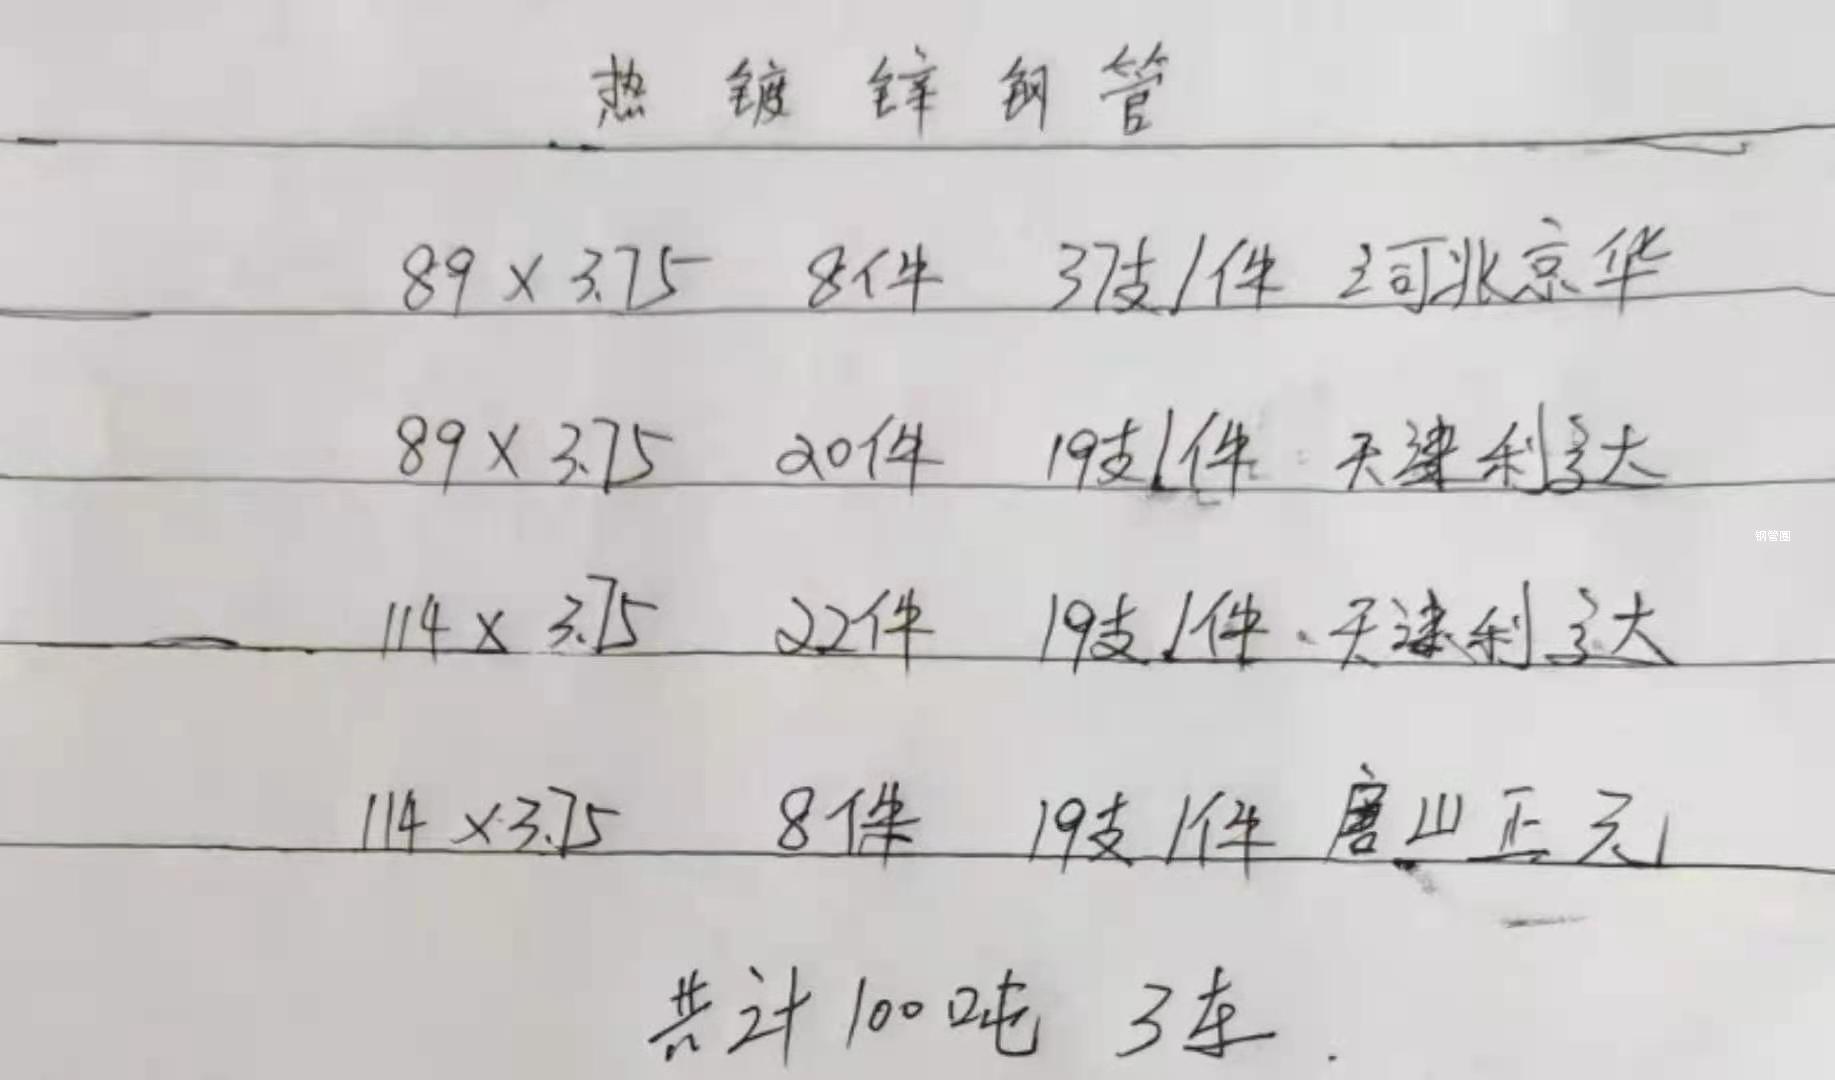 热镀锌钢管
89×3.75 8件 37支/件 河北京华
89×3.75 20件 19支/件 天津利达
114×3.75 22件 19支/件 天津利达
114×3.75 8件 19支/件 唐山正元
钢管圈
共计100吨 3车.